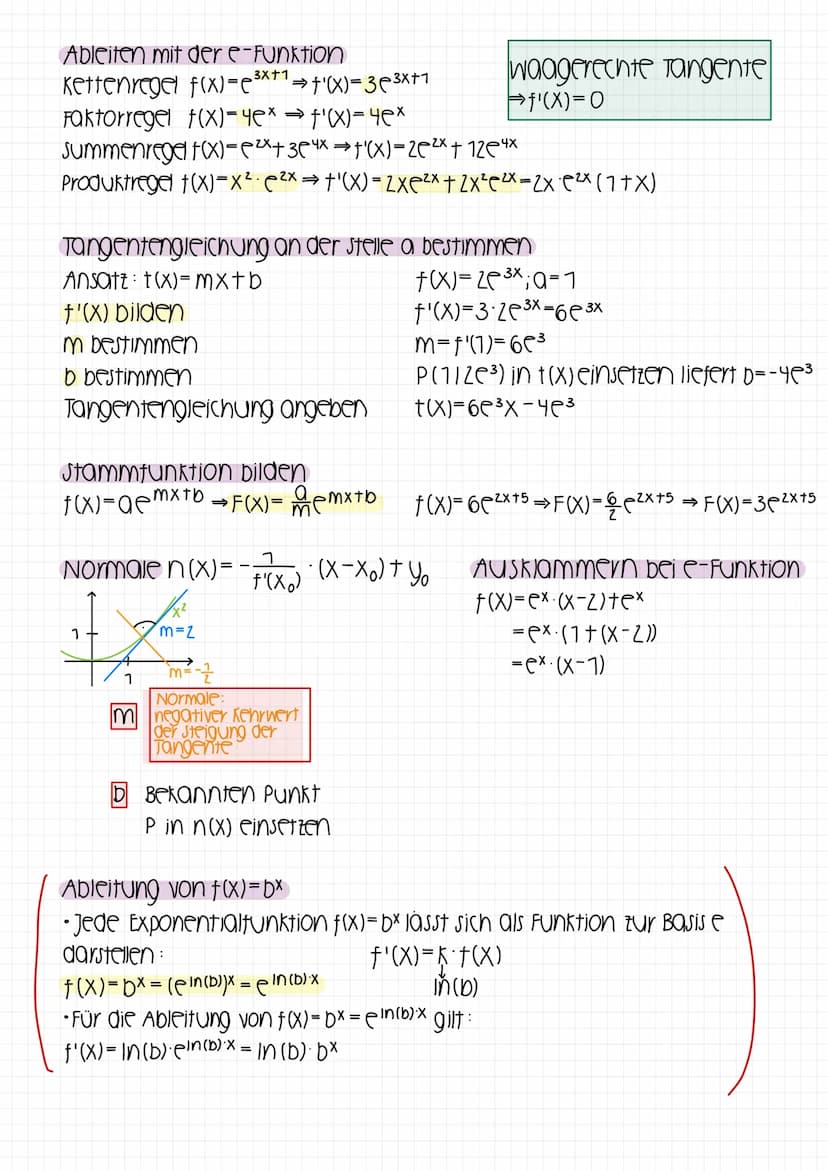 Ableiten mit der e-Funktion
Kettenregel f(x)=e^{3x+1} ⇒ f'(x)=3e^{3x+1}
Faktorregel f(x)=4e^x ⇒ f'(x)=4e^x
Summenregel f(x)=e^{2x}+3e^{4x} ⇒ f'(x)=2e^{2x}+12e^{4x}
Produktregel f(x)=x²·e^{2x} ⇒ f'(x)=2xe^{2x}+2x²e^{2x}=2x·e^{2x}(1+x)
Waagerechte Tangente
⇒ f'(x)=0
Tangentengleichung an der Stelle a bestimmen
Ansatz: t(x)=mx+b f(x)=2e^{3x}; a=1
f'(x) bilden f'(x)=3·2e^{3x}=6e^{3x}
m bestimmen m=f'(1)=6e³
b bestimmen P(1|2e³) in t(x) einsetzen liefert b=-4e³
Tangentengleichung angeben t(x)=6e³x-4e³
Stammfunktion bilden
f(x)=ae^{mx+b} ⇒ F(x)=\frac{a}{m}e^{mx+b} f(x)=6e^{2x+5} ⇒ F(x)=\frac{6}{2}e^{2x+5} ⇒ F(x)=3e^{2x+5}
Normale n(x)=-\frac{1}{f'(x₀)}·(x-x₀)+y₀
x²
1
m=2
1
m=-\frac{1}{2}
m
Normale:
negativer Kehrwert
der Steigung der
Tangente
b Bekannten Punkt
P in n(x) einsetzen
Ausklammern bei e-Funktion
f(x)=e^x·(x-2)+e^x
=e^x·(1+(x-2))
=e^x·(x-1)
Ableitung von f(x)=b^x
• Jede Exponentialfunktion f(x)=b^x lässt sich als Funktion zur Basis e
darstellen: f'(x)=k·f(x)
↓
f(x)=b^x=(e^{ln(b)})^x=e^{ln(b)·x} ln(b)
• Für die Ableitung von f(x)=b^x=e^{ln(b)·x} gilt:
f'(x)=ln(b)·e^{ln(b)·x}=ln(b)·b^x